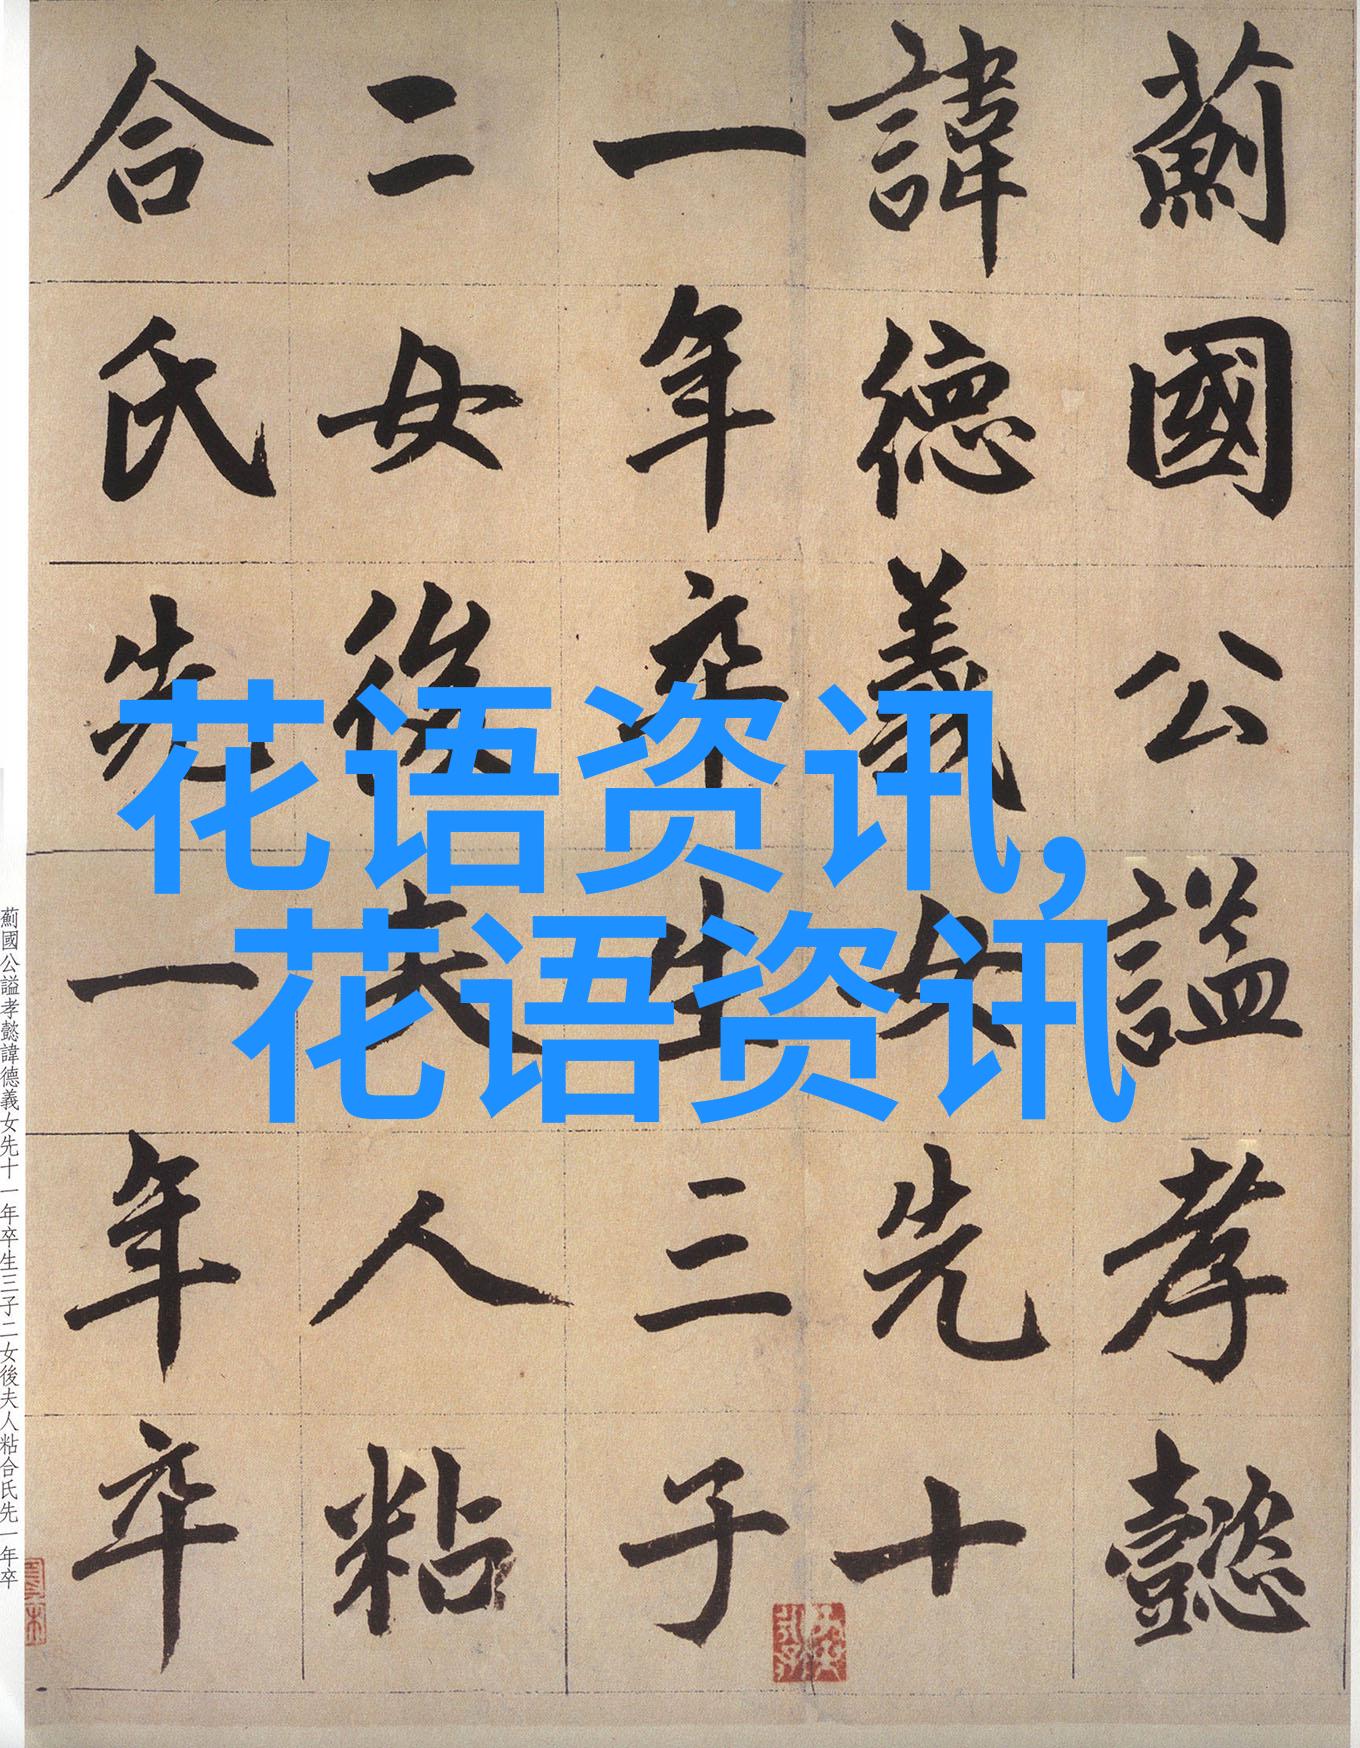 薊國公謚孝懿
諱德義女先十
一年卒生三子
二女後夫人粘
合氏先一年卒
花语资讯,
花语资讯
薊國公謚孝懿諱德義女先十一年卒生三子二女後夫人粘合氏先一年卒